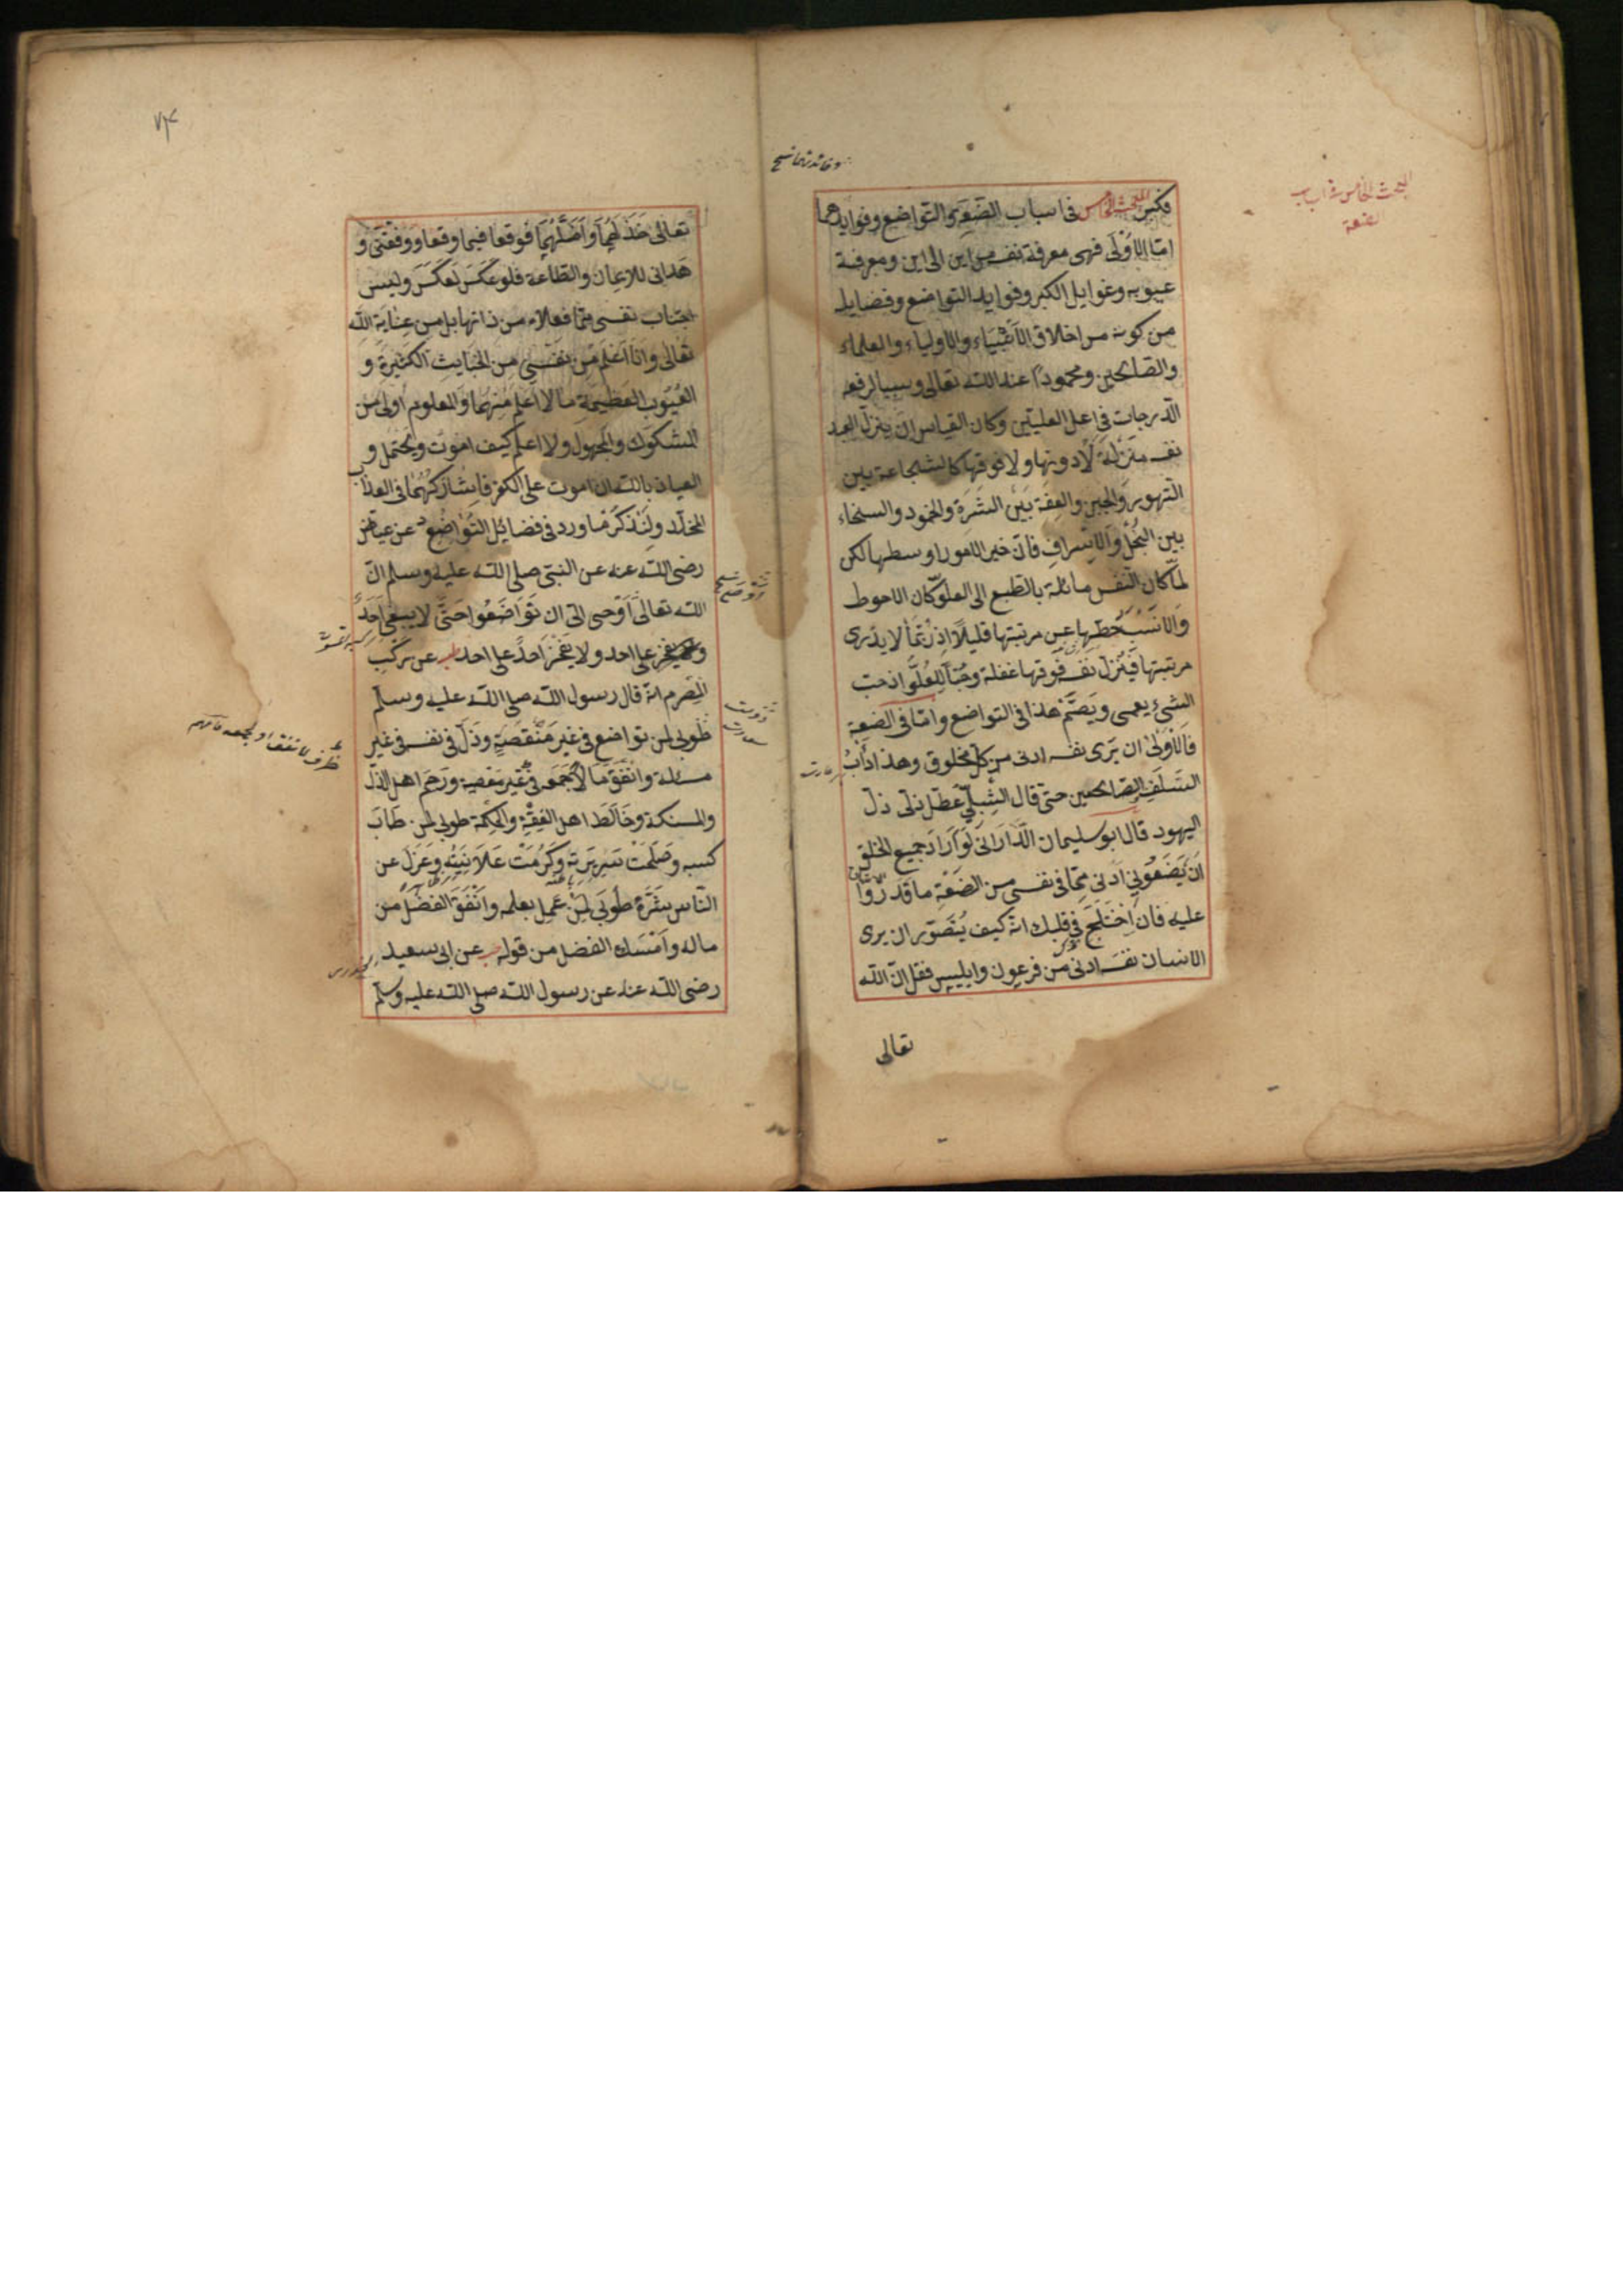 فكبر المبحث الخامس في اسباب الضَعَة والتواضع وفوايدهما
امّا الاُوْلَى فهى معرفة نفسه من اين الى اين ومعرفة
عيوبه وغوايل الكبر وفوايد التواضع وفضايله
من كونه من اخلاق الأنبياء والاولياء والعلماء
والصالحين ومحموداً عند اللّه تعالى وسببا لرفعه
الدّرجات في اعلى العليّين وكان القياس ان ينزل العبد
نفسه منزلة لا دونها ولا فوقها كالشجاعة بين
التهور والجبن والعفة بين الشَرَه والخمود والسخاء
بين البُخْل والاِسْراف فانّ خير الامور اوسطها لكن
لمّا كان النّفس مائلة بالطبع الى العلوّ كان الاحوط
والانسب حَطّها عن مرتبتها قليلاً اذ رُبّما لا يدرى
مرتبتها فيُنزل نفسه فوقها غفلة وحُبّاً للعُلُوّ اذ حب
الشىء يعمى ويصمّ هذا في التواضع وامّا في الضعة
فالاَوْلىٰ ان يَرى نفسه ادنى من كل مخلوق وهذا دأبُ
السَلَفِ الصّالحين حتّى قال الشِبليّ عَطّل ذلّى ذلّ
اليهود قال ابو سليمان الدّارَانى لَوْ اَرَادَ جميع الخلق
اَنْ يَضَعُونى اَدْنى ممّا في نفسى من الضَعْةِ ما قَدَرُوا
عليه فان اِخْتَلَجَ في قلبك انّه كيف يُتَصَوّر ان يرى
الانسان نفسه ادنى من فرعون وابليس فقل انّ اللّه
تعالى
المبحث الخامس في اسباب
الضعة
٧٤
تعالى خَذَلَهُمَا وَاَضَلَّهُمَا فوقعا فيما وقعا ووفّقنى و
هَدانى للايمان والطاعة فلو عَكَسَ لَعَكَسَ وليس
اجتناب نفسى ممّا فعلاه من ذاتها بل من عِنايَة اللّه
تعالى وانَا اَعْلَمُ من نَفْسِى من الخبايث الكثيرة و
العُيُوب العظيمة ما لا اعلم منهُما والمعلوم اولى من
المشكوك والمجهول ولا اعلم كيف اموت ويحتمل و
العياذ باللّه ان اموت على الكفر فاُشاركهُما في العذاب
المخلّد ولنذكر ما ورد في فضائل التواضع د عن عياض
رضى اللّه عنه عن النبى صلى اللّه عليه وسلم انّ
اللّه تعالى اَوْحى الىّ ان تَوَاضَعُوا حَتّى لا يبغى اَحَدٌ
على احد ولا يَفْخَرَ اَحَدٌ على احد طب عن ركب
المصرى انه قال رسول اللّه صلى اللّه عليه وسلم
طُوبى لمن تواضع في غير مَنْقَصَةٍ وذَلّ في نفسه في غير
مسئلة وانْفَقَ مالاً جَمَعَه في غير معصية ورَحِمَ اهل الذلّ
والمسكنة وخَالَطَ اهل الفقه والحكمة طوبى لمن طَابَ
كسبه وصَلُحَتْ سَرِيرَته وكَرُمَتْ عَلانِيَتُه وعَزَلَ عن
النّاس شَرّهُ طُوبى لِمَنْ عَمِل بعلمه وانْفَقَ الفضل من
ماله وَاَمْسَكَ الفضل من قوله عن ابى سعيد
رضى اللّه عنه عن رسول اللّه صلى اللّه عليه وسلم